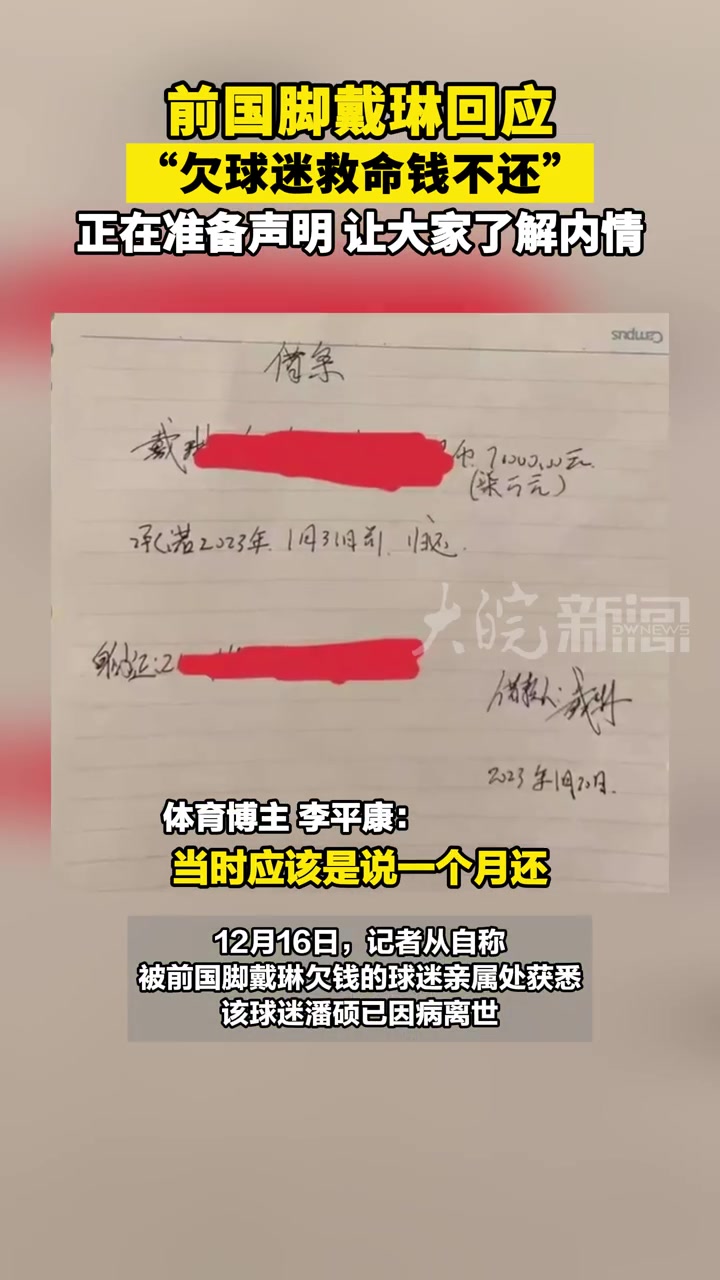 前国脚戴琳回应
“欠球迷救命钱不还”
正在准备声明 让大家了解内情
Campus
借条
戴琳
币 70000.00元
(柒万元)
承诺2023年1月31日前 归还.
大皖新闻
DWNEWS
身份证:2
借款人:戴琳
2023年1月20日.
体育博主 李平康：
当时应该是说一个月还
12月16日，记者从自称
被前国脚戴琳欠钱的球迷亲属处获悉
该球迷潘硕已因病离世